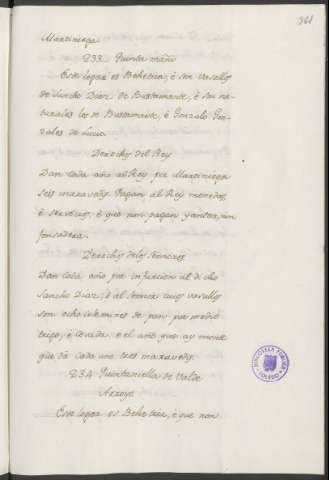 361
Martiniega
233 Quinta mañi
Este logar es Behetria, è son Vasallos
de Sancho Diaz de Bustamante, è son na-
turiales los de Bustamante, è Gonzalo Gon-
zales de Lucio.
Derechos del Rey
Dan cada año al Rey por Martiniega
seis maravedis. Pagan al Rey monedas,
è servicios, è que non pagan yantar, nin
fonsadera.
Derechos delos Señores
Dan cada año por infurcion al dicho
Sancho Diaz, è al Señor cuios vasallos
son ocho celemines de pan por medio
trigo, è cevada, e el año que ay monte
que dà cada uno tres maravedis.
234 Quintaniella de Valde
Arroyo
Este logar es Behetria, è que non
BIBLIOTECA PUBLICA
TOLEDO